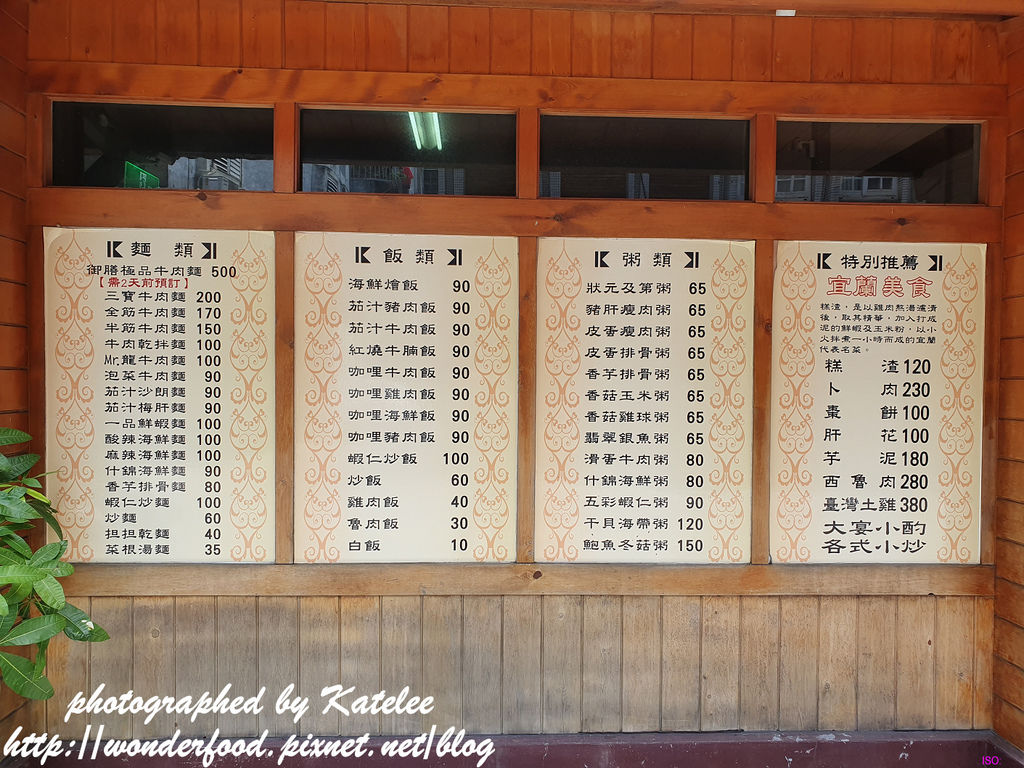 麵 類
御膳極品牛肉麵 500
【需2天前預訂】
三寶牛肉麵 200
全筋牛肉麵 170
半筋牛肉麵 150
牛肉乾拌麵 100
Mr.龍牛肉麵 100
泡菜牛肉麵 100
茄汁沙朗麵 90
茄汁梅肝麵 90
一品鮮蝦麵 100
酸辣海鮮麵 100
麻辣海鮮麵 100
什錦海鮮麵 90
香芋排骨麵 80
蝦仁炒麵 100
炒麵 60
担担乾麵 40
菜根湯麵 35
飯 類
海鮮燴飯 90
茄汁豬肉飯 90
茄汁牛肉飯 90
紅燒牛腩飯 90
咖哩牛肉飯 90
咖哩雞肉飯 90
咖哩海鮮飯 90
咖哩豬肉飯 90
蝦仁炒飯 100
炒飯 60
雞肉飯 40
魯肉飯 30
白飯 10
粥 類
狀元及第粥 65
豬肝瘦肉粥 65
皮蛋瘦肉粥 65
皮蛋排骨粥 65
香芋排骨粥 65
香菇玉米粥 65
香菇雞球粥 65
翡翠銀魚粥 65
滑蛋牛肉粥 80
什錦海鮮粥 80
五彩蝦仁粥 90
干貝海帶粥 120
鮑魚冬菇粥 150
特別推薦
宜蘭美食
糕渣，是以雞肉熬湯濾清
後，取其精華，加入打成
泥的鮮蝦及玉米粉，以小
火拌煮一小時而成的宜蘭
代表名菜。
糕 渣 120
卜 肉 230
棗 餅 100
肝 花 100
芋 泥 180
西魯肉 280
臺灣土雞 380
大宴小酌
各式小炒
photographed by Katelee
http://wonderfood.pixnet.net/blog
ISO: